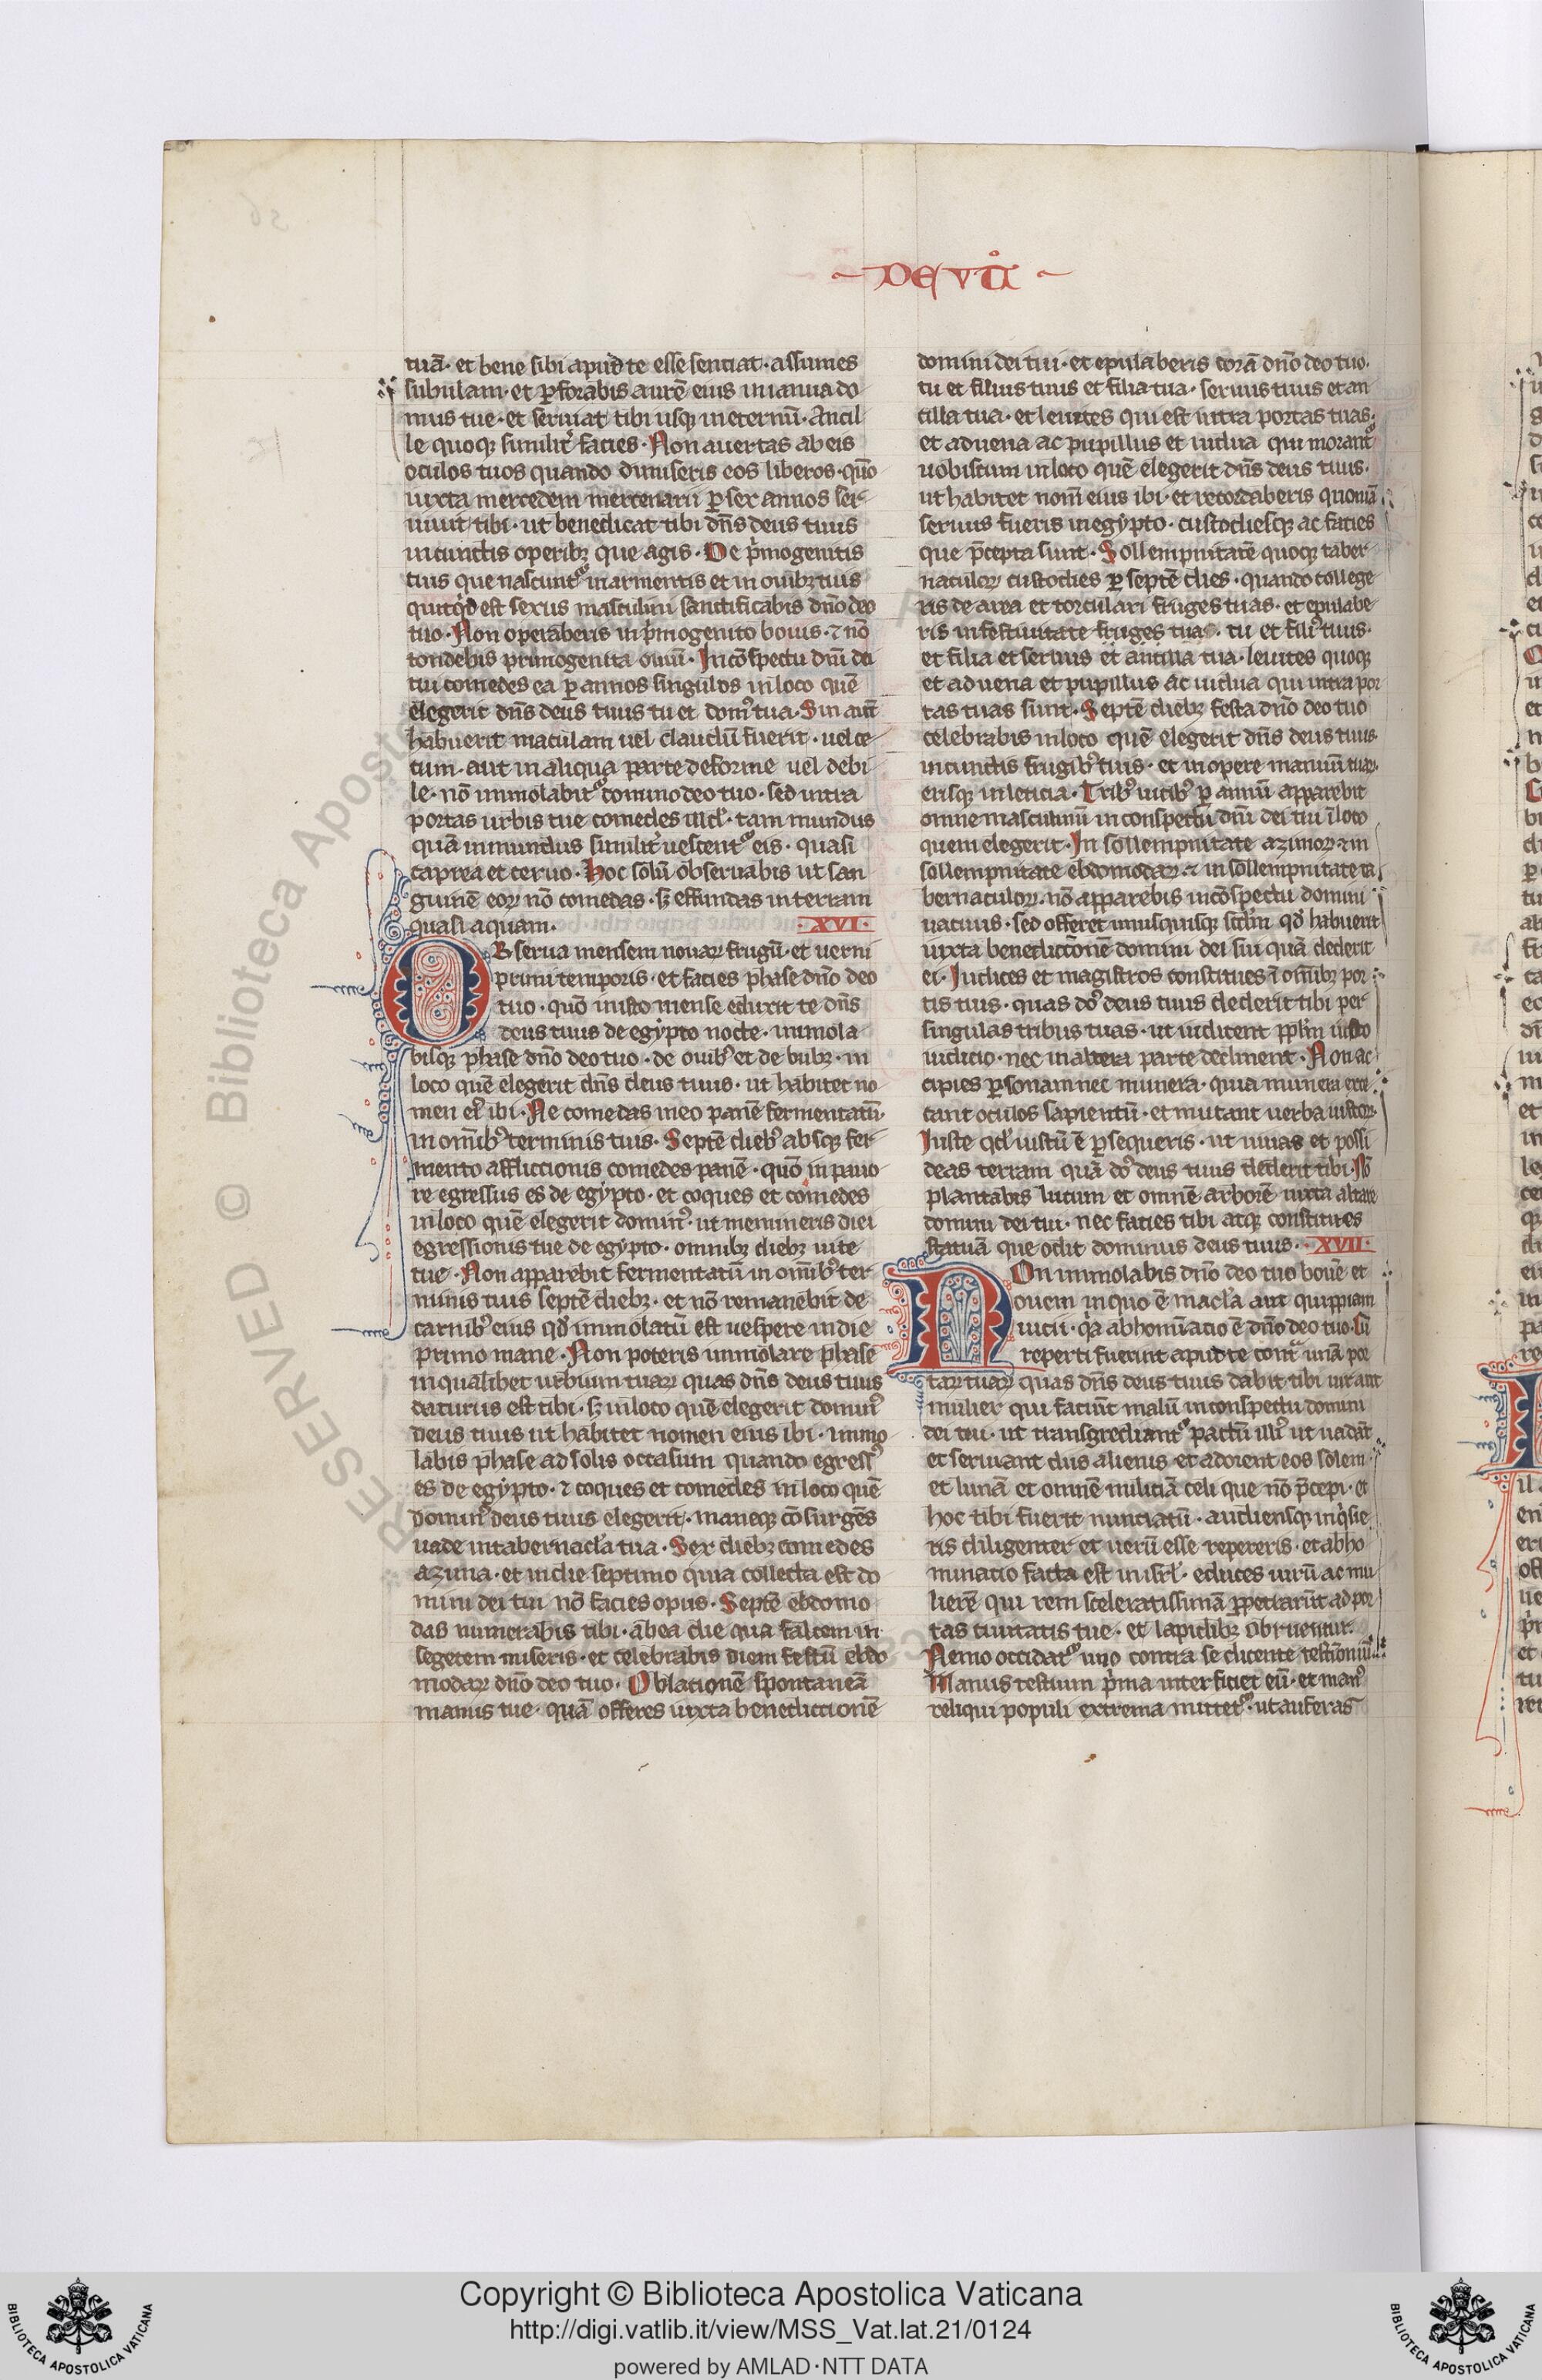 DEUṪ
tuā· et bene sibi apud te esse senciat· assumes
subulam· et ꝑforabis aurē eius in ianua do
mus tue· et seruiat tibi usqꝫ in eternū· Ancil
le quoqꝫ similit̉ facies· Non auertas ab eis
oculos tuos quando dimiseris eos liberos· qm̄
iuxta mercedem mercenarii ꝑ sex annos ser
uiuit tibi· ut benedicat tibi dn̄s deus tuus
in cunctis operibꝫ que agis· De p̉mogenitis
tuis que nascunt᷑ in armentis et in ouibꝫ tuis
quicq̉d est sexus masculini sanctificabis dn̄o deo
tuo· Non operaberis in p̉mogenito bouis· ⁊ nō
tondebis primogenita ouiū· In cōspectu dn̄i dei
tui comedes ea ꝑ annos singulos in loco quē
elegerit dn̄s deus tuus tu et domꝰ tua· Sin aut̄
habuerit maculam uel claudū fuerit· uel ce
cum· aut in aliqua parte deforme uel debi
le· nō immolabit᷑ domino deo tuo· sed intra
portas urbis tue comedes illud· tam mundus
quā inmundus similit̉ uescent᷑ eis· quasi
caprea et ceruo· Hoc solū obseruabis ut san
guinē eoꝝ nō comedas· sꝫ effundas in terram
quasi aquam·
·XVI·
OBserua mensem nouaꝝ frugū· et uerni
primi temporis· et facies phase dn̄o deo
tuo· quō in isto mense eduxit te dn̄s
deus tuus de egypto nocte· immola
bisqꝫ phase dn̄o deo tuo· de ouibꝰ et de bubꝫ· in
loco quē elegerit dn̄s deus tuus· ut habitet no
men eiꝰ ibi· Ne comedas in eo panē fermentatū·
in om̄ibꝰ terminis tuis· Septē diebꝰ absqꝫ fer
mento affliccionis comedes panē· quō in pauo
re egressus es de egypto· et coques et comedes
in loco quē elegerit dominꝰ· ut memineris diei
egressionis tue de egypto· omnibꝫ diebꝫ uite
tue· Non apparebit fermentatū in om̄ibꝰ ter
minis tuis septē diebꝫ· et nō remanebit de
carnibꝰ eius qd̄ immolatū est uespere in die
primo mane· Non poteris immolare phase
in qualibet urbium tuaꝝ quas dn̄s deus tuus
daturus est tibi· sꝫ in loco quē elegerit dominꝰ
deus tuus ut habitet nomen eius ibi· immo
labis phase ad solis occasum quando egressꝰ
es de egypto· ⁊ coques et comedes in loco quē
dominꝰ deus tuus elegerit· maneqꝫ cōsurgēs
uade in tabernacl̉a tua· Sex diebꝫ comedes
azima· et in die septimo quia collecta est do
mini dei tui nō facies opus· Septē ebdomo
das numerabis tibi· ab ea die qua falcem in
segetem miseris· et celebrabis diem festū ebdo
modaꝝ dn̄o deo tuo· Oblationē spontaneā
manus tue· quā offeres iuxta benediccionē
domini dei tui· et epulaberis corā dn̄o deo tuo·
tu et filius tuus et filia tua· seruus tuus et an
cilla tua· et leuites qui est intra portas tuas·
et aduena ac pupillus et uidua qui morant᷑
uobiscum in loco quē elegerit dn̄s deus tuus·
ut habitet nom̄ eius ibi· et recordaberis quoniā
seruus fueris in egypto· custodiesqꝫ ac facies
que p̄cepta sunt· Sollempnitatē quoqꝫ taber
naculoꝝ custodies ꝑ septē dies· quando college
ris de area et torculari fruges tuas· et epulabe
ris in festiuitate fruges tuas· tu et filiꝰ tuus·
et filia et seruus et ancilla tua· leuites quoqꝫ
et aduena et pupillus ac uidua qui intra por
tas tuas sunt· Septē diebꝫ festa dn̄o deo tuo
celebrabis in loco quē elegerit dn̄s deus tuus
in cunctis frugibꝰ tuis· et in opere manuū tuaꝝ·
erisqꝫ in leticia· Tribꝰ uicibꝰ ꝑ annū apparebit
omne masculinū in conspectu dn̄i dei tui ī loco
quem elegerit· In sollempnitate azimoꝝ ⁊ in
sollempnitate ebdomodaꝝ· ⁊ in sollempnitate ta
bernaculoꝝ· nō apparebis in cōspectu domini
uacuus· sed offeret unusquisqꝫ scd̄m qd̄ habuerit
iuxta benedictionē domini dei sui quā dederit
ei· Iudices et magistros constitues ī om̄ibꝫ por
tis tuis· quas dn̄s deus tuus dederit tibi per
singulas tribus tuas· ut iudicent ppl̄m iusto
iudicio· nec in altera parte declinent· Non ac
cipies ꝑsonam nec munera· quia munera exce
cant oculos sapientū· et mutant uerba iustoꝝ·
Iuste qd̄ iustū ē ꝑsequeris· ut uiuas et possi
deas terram quā dn̄s deus tuus dederit tibi· Nō
plantabis lucum et omnē arborē iuxta altare
domini dei tui· nec facies tibi atqꝫ constitues
statuā que odit dominus deus tuus·
·XVII·
NOn immolabis dn̄o deo tuo bouē et
ouem in quo ē macl̉a aut quippiam
uicii· q̉a abhomīacio ē dn̄o deo tuo· Si
reperti fuerint apud te contr̄ unā por
taꝝ tuaꝝ quas dn̄s deus tuus dabit tibi uir aut
mulier qui faciūt malū in conspectu domini
dei tui· ut transgrediant᷑ pactū illiꝰ ut uadāt
et seruiant diis alienis et adorent eos solem
et lunā et omnē miliciā celi que nō p̄cepi· et
hoc tibi fuerit nunciatū· audiensqꝫ inq̉sie
ris diligenter et uerū esse repereris· et abho
minacio facta est in isrl̄· educes uirū ac mu
lierē qui rem sceleratissimā ꝑpetrarūt ad por
tas ciuitatis tue· et lapidibꝫ obruentur.
Nemo occidat᷑ uno contra se dicente testimoniū·
Manus testium p̉ma interficiet eū· et manꝰ
reliqui populi extrema mittet᷑· ut auferas
Copyright © Biblioteca Apostolica Vaticana
http://digi.vatlib.it/view/MSS_Vat.lat.21/0124
powered by AMLAD·NTT DATA
BIBLIOTECA APOSTOLICA VATICANA
BIBLIOTECA APOSTOLICA VATICANA